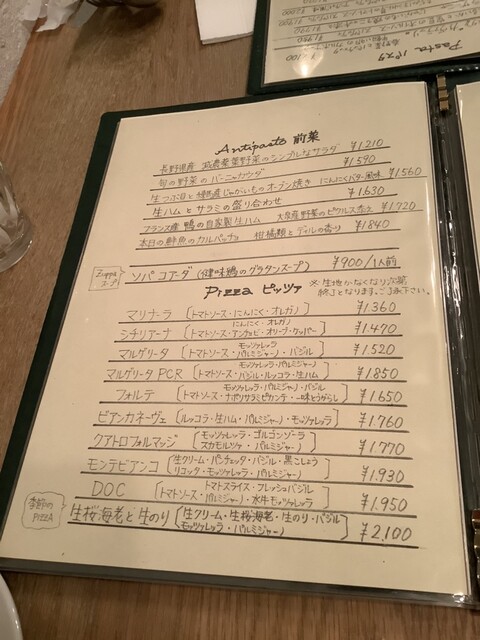 Pasta パスタ
Antipasto 前菜
長野県産 減農薬葉野菜のシンプルなサラダ ¥1.210
旬の野菜の バーニャカウダ ¥1.590
生つぶ貝と じゃがいものオーブン焼き にんにくバター風味 ¥1.560
生ハムとサラミの盛り合わせ ¥1.630
フランス産 鴨の自家製生ハム 野菜のピクルス添え ¥1.720
本日の鮮魚のカルパッチョ 柑橘類とディルの香り ¥1.840
Zuppa スープ
ソパ コアーダ (健味鶏のグラタンスープ) ¥900/1人前
Pizza ピッツァ
※生地がなくなり次第
終了となります。ご了承下さい。
マリナーラ [トマトソース・にんにく・オレガノ] ¥1.360
シチリアーナ [にんにく・オレガノ
トマトソース・アンチョビ・オリーブ・ケッパー] ¥1.470
マルゲリータ [モッツァレッラ
トマトソース・パルミジャーノ・バジル] ¥1.520
マルゲリータ PCR [モッツァレッラ・パルミジャーノ
トマトソース・バジル・ルッコラ・生ハム] ¥1.850
フォルテ [モッツァレッラ・パルミジャーノ・バジル
トマトソース・ナポリサラミピカンテ・一味とうがらし] ¥1.650
ビアンカネーヴェ [ルッコラ・生ハム・パルミジャーノ・モッツァレッラ] ¥1.760
クアトロフォルマッジ [モッツァレッラ・ゴルゴンゾーラ
スカモルツァ・パルミジャーノ] ¥1.770
モンテビアンコ [生クリーム・パンチェッタ・バジル・黒こしょう
リコッタ・モッツァレッラ・パルミジャーノ] ¥1.930
DOC [トマトスライス・フレッシュバジル
トマトソース・パルミジャーノ・水牛モッツァレッラ] ¥1.950
季節の PIZZA
生桜海老と生のり [生クリーム・生桜海老・生のり・バジル
モッツァレッラ・パルミジャーノ] ¥2,100